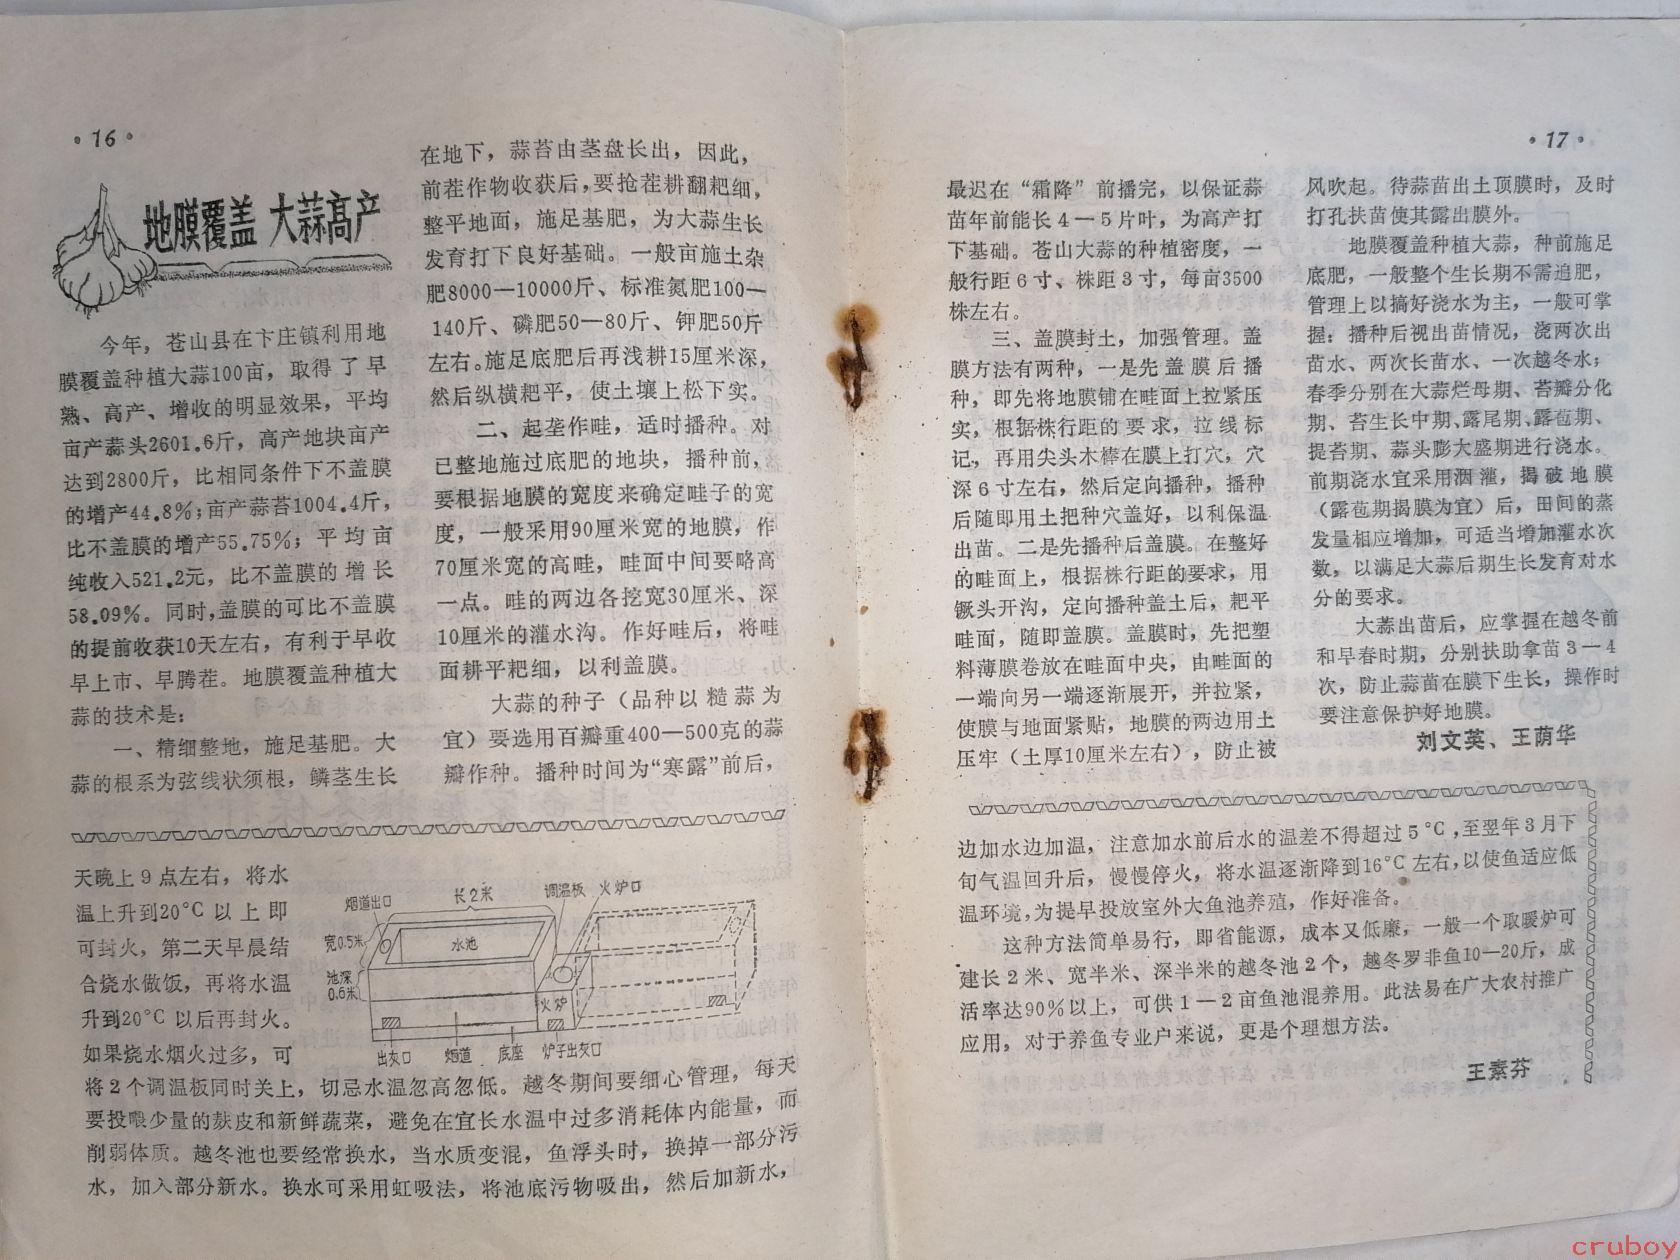 ·16·
地膜覆盖 大蒜高产
今年，苍山县在卞庄镇利用地
膜覆盖种植大蒜100亩，取得了早
熟、高产、增收的明显效果，平均
亩产蒜头2601.6斤，高产地块亩产
达到2800斤，比相同条件下不盖膜
的增产44.8%；亩产蒜苔1004.4斤，
比不盖膜的增产55.75%；平均亩
纯收入521.2元，比不盖膜的增长
58.09%。同时，盖膜的可比不盖膜
的提前收获10天左右，有利于早收
早上市、早腾茬。地膜覆盖种植大
蒜的技术是：
一、精细整地，施足基肥。大
蒜的根系为弦线状须根，鳞茎生长
在地下，蒜苔由茎盘长出，因此，
前茬作物收获后，要抢茬耕翻耙细，
整平地面，施足基肥，为大蒜生长
发育打下良好基础。一般亩施土杂
肥8000—10000斤、标准氮肥100—
140斤、磷肥50—80斤、钾肥50斤
左右。施足底肥后再浅耕15厘米深，
然后纵横耙平，使土壤上松下实。
二、起垄作畦，适时播种。对
已整地施过底肥的地块，播种前，
要根据地膜的宽度来确定畦子的宽
度，一般采用90厘米宽的地膜，作
70厘米宽的高畦，畦面中间要略高
一点。畦的两边各挖宽30厘米、深
10厘米的灌水沟。作好畦后，将畦
面耕平耙细，以利盖膜。
大蒜的种子（品种以糙蒜为
宜）要选用百瓣重400—500克的蒜
瓣作种。播种时间为“寒露”前后，
天晚上9点左右，将水
温上升到20°C以上即
可封火，第二天早晨结
合烧水做饭，再将水温
升到20°C以后再封火。
如果烧水烟火过多，可
将2个调温板同时关上，切忌水温忽高忽低。越冬期间要细心管理，每天
要投喂少量的麸皮和新鲜蔬菜，避免在宜长水温中过多消耗体内能量，而
削弱体质。越冬池也要经常换水，当水质变混，鱼浮头时，换掉一部分污
水，加入部分新水。换水可采用虹吸法，将池底污物吸出，然后加新水，
烟道出口
长2米
调温板
火炉口
宽0.5米
水池
池深
0.6米
火炉
出灰口
烟道
底座
炉子出灰口
·17·
最迟在“霜降”前播完，以保证蒜
苗年前能长4—5片叶，为高产打
下基础。苍山大蒜的种植密度，一
般行距6寸、株距3寸，每亩3500
株左右。
三、盖膜封土，加强管理。盖
膜方法有两种，一是先盖膜后播
种，即先将地膜铺在畦面上拉紧压
实，根据株行距的要求，拉线标
记，再用尖头木棒在膜上打穴，穴
深6寸左右，然后定向播种，播种
后随即用土把种穴盖好，以利保温
出苗。二是先播种后盖膜。在整好
的畦面上，根据株行距的要求，用
镢头开沟，定向播种盖土后，耙平
畦面，随即盖膜。盖膜时，先把塑
料薄膜卷放在畦面中央，由畦面的
一端向另一端逐渐展开，并拉紧，
使膜与地面紧贴，地膜的两边用土
压牢（土厚10厘米左右），防止被
风吹起。待蒜苗出土顶膜时，及时
打孔扶苗使其露出膜外。
地膜覆盖种植大蒜，种前施足
底肥，一般整个生长期不需追肥，
管理上以搞好浇水为主，一般可掌
握：播种后视出苗情况，浇两次出
苗水、两次长苗水、一次越冬水；
春季分别在大蒜烂母期、苔瓣分化
期、苔生长中期、露尾期、露苞期、
提苔期、蒜头膨大盛期进行浇水。
前期浇水宜采用洇灌，揭破地膜
（露苞期揭膜为宜）后，田间的蒸
发量相应增加，可适当增加灌水次
数，以满足大蒜后期生长发育对水
分的要求。
大蒜出苗后，应掌握在越冬前
和早春时期，分别扶助拿苗3—4
次，防止蒜苗在膜下生长，操作时
要注意保护好地膜。
刘文英、王荫华
边加水边加温，注意加水前后水的温差不得超过5°C，至翌年3月下
旬气温回升后，慢慢停火，将水温逐渐降到16°C左右，以使鱼适应低
温环境，为提早投放室外大鱼池养殖，作好准备。
这种方法简单易行，即省能源，成本又低廉，一般一个取暖炉可
建长2米、宽半米、深半米的越冬池2个，越冬罗非鱼10—20斤，成
活率达90%以上，可供1—2亩鱼池混养用。此法易在广大农村推广
应用，对于养鱼专业户来说，更是个理想方法。
王素芬
cruboy